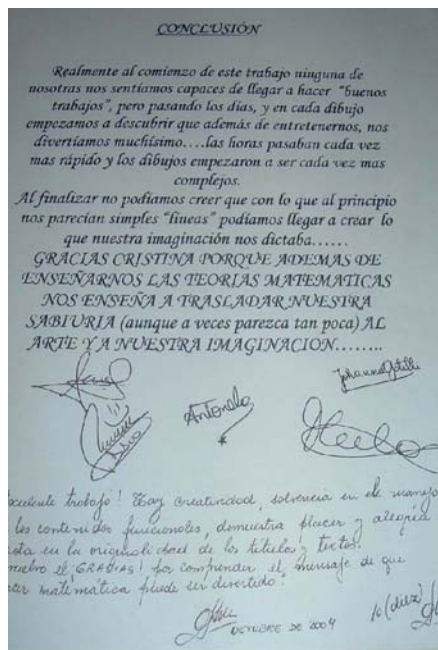 CONCLUSIÓN
Realmente al comienzo de este trabajo ninguna de
nosotras nos sentíamos capaces de llegar a hacer "buenos
trabajos", pero pasando los días, y en cada dibujo
empezamos a descubrir que además de entretenernos, nos
divertíamos muchísimo....las horas pasaban cada vez
mas rápido y los dibujos empezaron a ser cada vez mas
complejos.
Al finalizar no podíamos creer que con lo que al principio
nos parecían simples "lineas" podíamos llegar a crear lo
que nuestra imaginación nos dictaba......
GRACIAS CRISTINA PORQUE ADEMAS DE
ENSEÑARNOS LAS TEORIAS MATEMATICAS
NOS ENSEÑA A TRASLADAR NUESTRA
SABIURIA (aunque a veces parezca tan poca) AL
ARTE Y A NUESTRA IMAGINACION........
Antonella
xcelente trabajo! Hay creatividad, solvencia en el manejo
los contenidos funcionales, demuestra placer y alegría
sta en la originalidad de los títulos y textos.
el GRACIAS! por comprender el mensaje de que
cer matemática puede ser divertido!
OCTUBRE DE 2004
10 (diez)